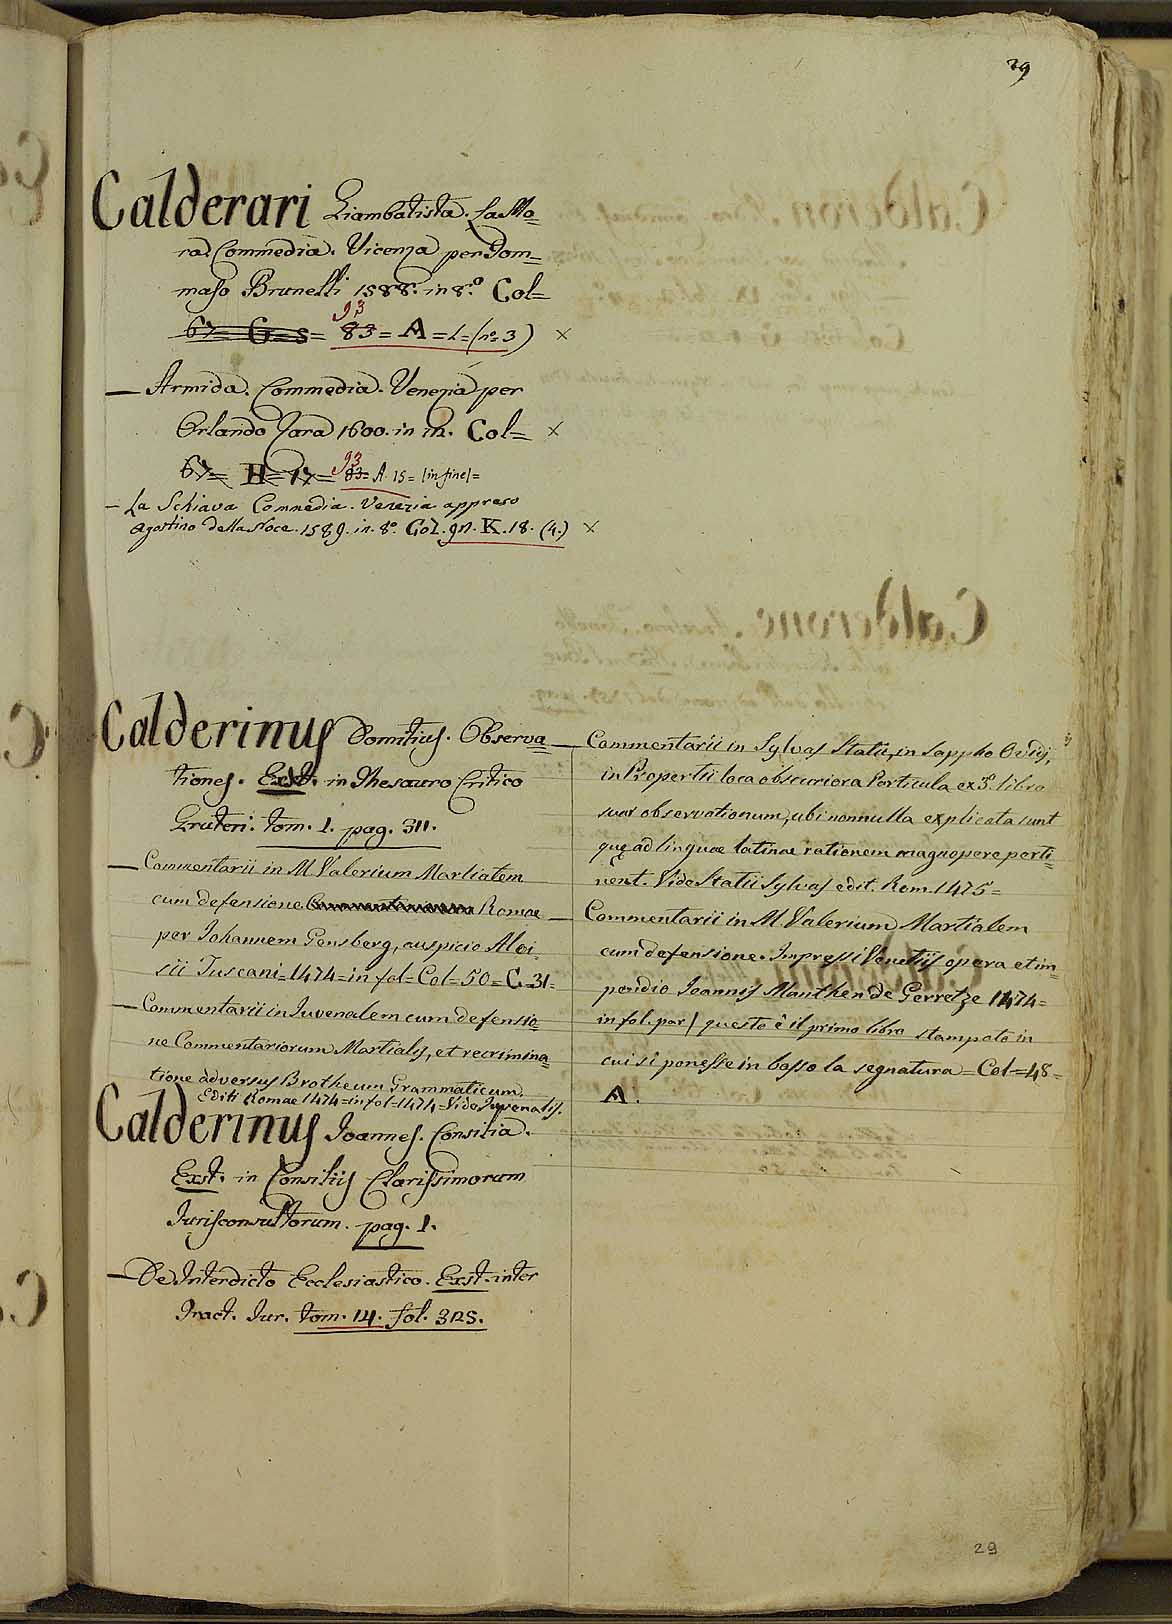 29
Calderari Giambatista. La Mo=
ra. Commedia. Vicenza per Tom=
maso Brunelli 1588. in 8.º Col=
67= G= s= 83 93 = A = 1 = (nº 3) ×
— Armida. Commedia. Venezia per
Orlando Zara 1600. in 12. Col= ×
67= H= 17= 83= 93 A. 15= (in fine)=
— La Schiava Commedia. Venezia appreso
Agostino della Noce. 1589. in. 8º. Col. 92. K. 18. (4.) ×
Calderinus Domitius. Observa=
tiones. Exst. in Thesauro Critico
Gruteri. tom. 1. pag. 311.
— Commentarii in M Valerium Martialem
cum defensione Romae
per Iohannem Gensberg, auspicio Aloi=
sii Tuscani=1474=in fol=Col=50=C=31=
— Commentarii in Iuvenalem cum defensio=
ne Commentariorum Martialis, et recrimina=
tione adversus Brotheum Grammaticum.
Editi Romae 1474=in fol=1474=Vide Iuvenalis.
Calderinus Ioannes. Consilia.
Exst. in Consiliis Clarissimorum
Iurisconsultorum. pag. 1.
— De Interdicto Ecclesiastico. Exst. inter
Tract. Iur. tom. 14. fol. 325.
— Commentarii in Sylvas Statii, in Sappho Ovidij,
in Propertii loca obscuriora Particula ex 3º. libro
suar observationum, ubi nonnulla explicata sunt
quę ad linguae latinae rationem magnopere perti=
nent. Vide Statii Sylvas edit. Rom. 1475=
— Commentarii in M. Valerium Martialem
cum defensione. Impressi Venetijs opera et im=
pendio Ioannis Manthen de Gerretze 1474=
in fol. par/ questo è il primo libro stampato in
cui si ponesse in basso la segnatura=Col=48=
A.
29